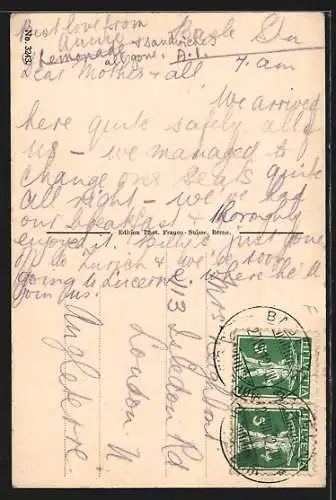 No. 3243
Best love from
Annie
Lemonade & sandwiches
all gone. A.1.
Basle Stn
7. am
Dear Mother & all
We arrived
here quite safely all of
us – we managed to
change our seats quite
all right – we've had
our breakfast & thoroughly
enjoyed it. Billie's just gone
on to Zurich & we're soon
going to Lucerne where he'll
join us.
Edition Phot. Franco-Suisse, Berne.
Mrs
213 Isledon Rd
London N
Angleterre.
HELVETIA
5
HELVETIA
5